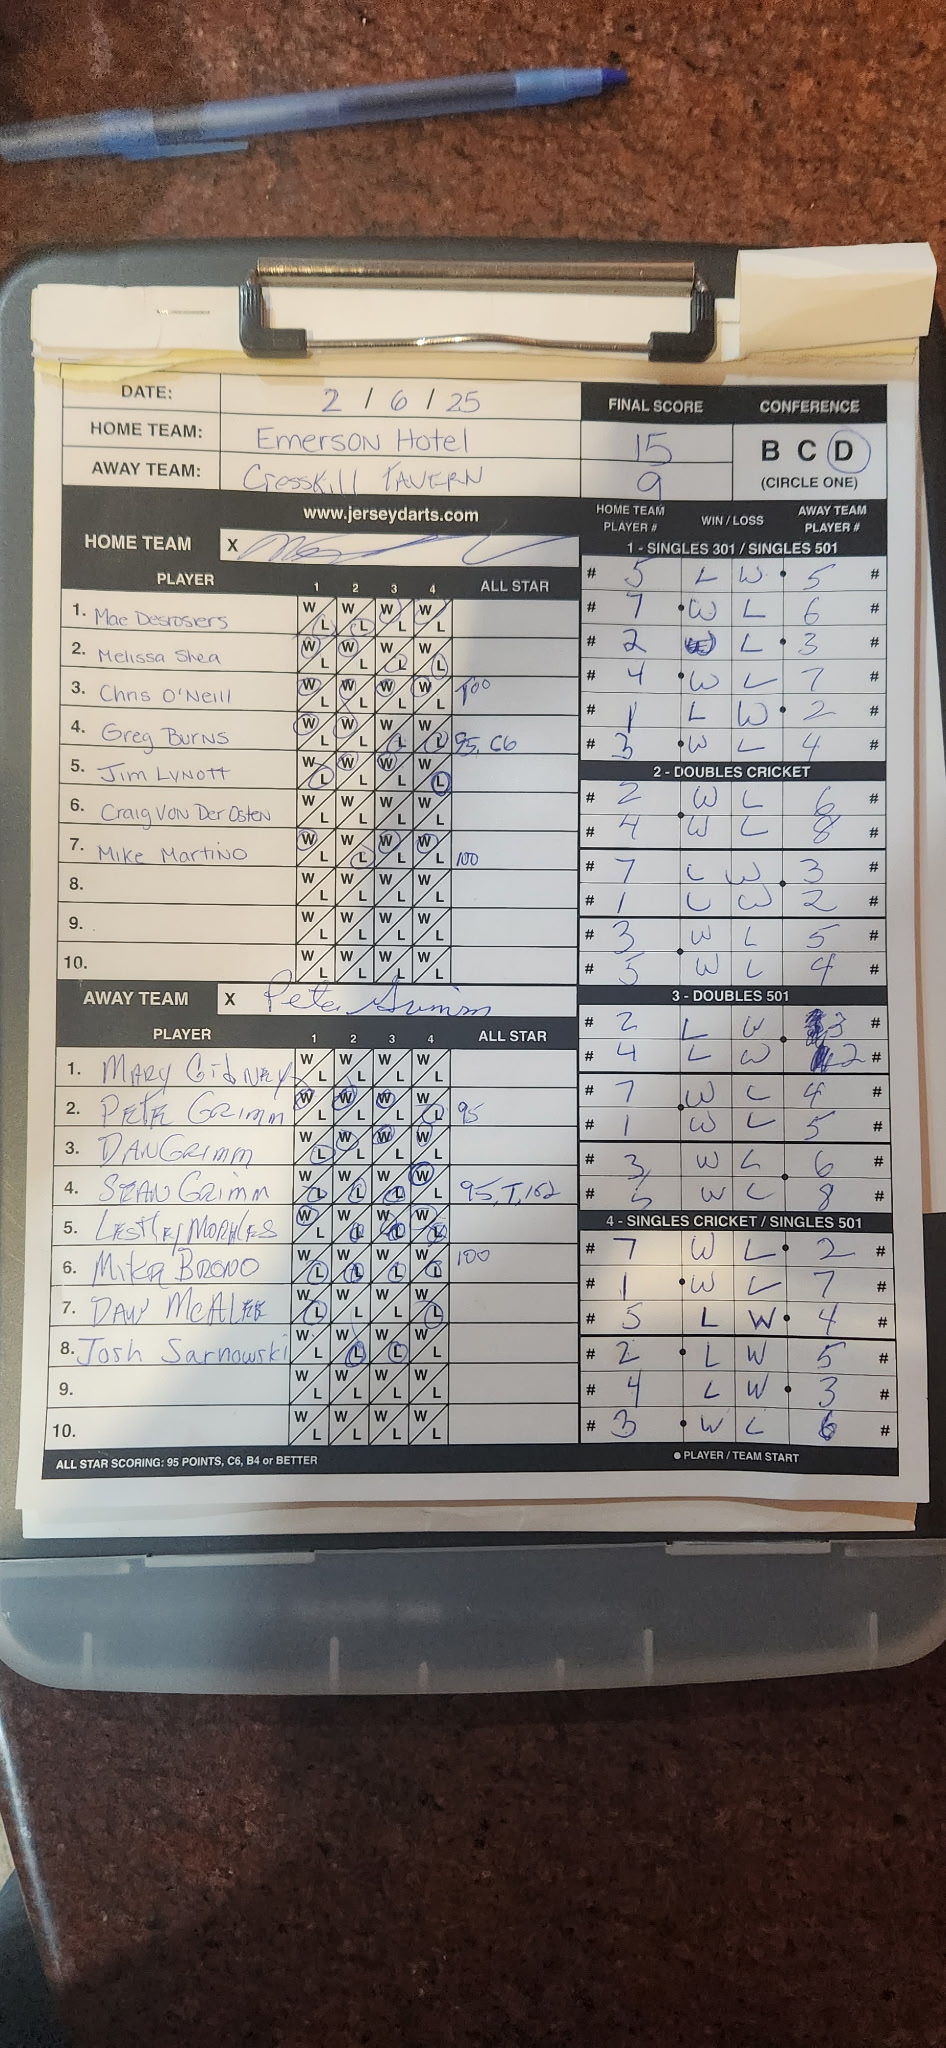 DATE: 2 / 6 / 25
FINAL SCORE CONFERENCE
HOME TEAM: Emerson Hotel 15
B C D
AWAY TEAM: Crosskill TAVERN 9
(CIRCLE ONE)
www.jerseydarts.com
HOME TEAM PLAYER # WIN / LOSS AWAY TEAM PLAYER #
HOME TEAM X
PLAYER 1 2 3 4 ALL STAR
1. Mae Desrosiers W L W L W L W L
2. Melissa Shea W L W L W L W L
3. Chris O'Neill W L W L W L W L T00
4. Greg Burns W L W L W L W L 95, C6
5. Jim Lynott W L W L W L W L
6. Craig Von Der Osten W L W L W L W L
7. Mike Martino W L W L W L W L 100
8. W L W L W L W L
9. W L W L W L W L
10. W L W L W L W L
AWAY TEAM X Pete Grimm
PLAYER 1 2 3 4 ALL STAR
1. MARY GidNEY W L W L W L W L
2. PETE GRIMM W L W L W L W L 95
3. DAN GRIMM W L W L W L W L
4. SEAN GRIMM W L W L W L W L 95, T, 162
5. W L W L W L W L
6. MIKE W L W L W L W L 100
7. DAN McALEE W L W L W L W L
8. Josh Sarnowski W L W L W L W L
9. W L W L W L W L
10. W L W L W L W L
ALL STAR SCORING: 95 POINTS, C6, B4 or BETTER
1 - SINGLES 301 / SINGLES 501
# 5 L W • 5 #
# 7 • W L 6 #
# 2 W L • 3 #
# 4 • W L 7 #
# 1 L W • 2 #
# 3 • W L 4 #
2 - DOUBLES CRICKET
# 2 W L 6 #
# 4 W L 8 #
# 7 L W 3 #
# 1 L W 2 #
# 3 W L 5 #
# 5 W L 4 #
3 - DOUBLES 501
# 2 L W 3 #
# 4 L W 2 #
# 7 W L 4 #
# 1 W L 5 #
# 3 W L 6 #
# 5 W L 8 #
4 - SINGLES CRICKET / SINGLES 501
# 7 W L • 2 #
# 1 • W L 7 #
# 5 L W • 4 #
# 2 • L W 5 #
# 4 L W • 3 #
# 3 • W L 6 #
• PLAYER / TEAM START